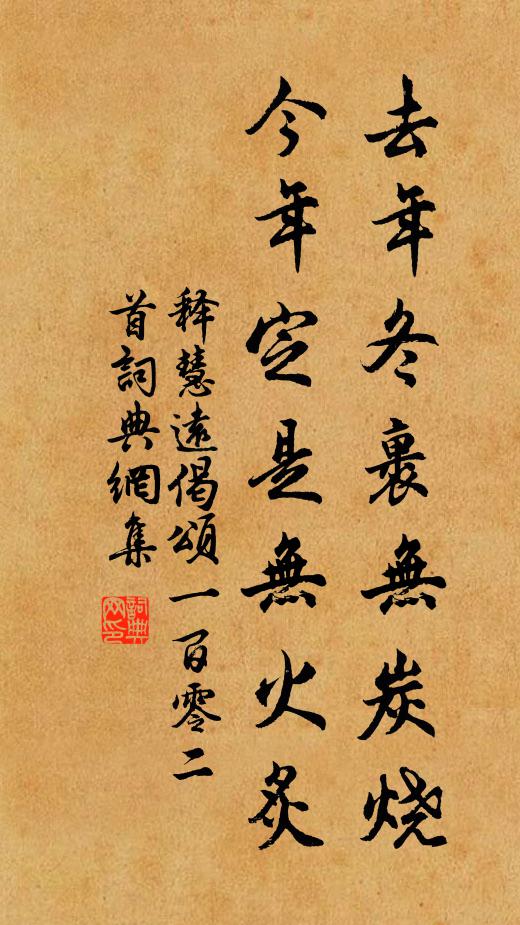 去年冬裏無炭烧
今年定是無火炙
释慧遠偈頌一百零二
首詞典網集
詞典
网印